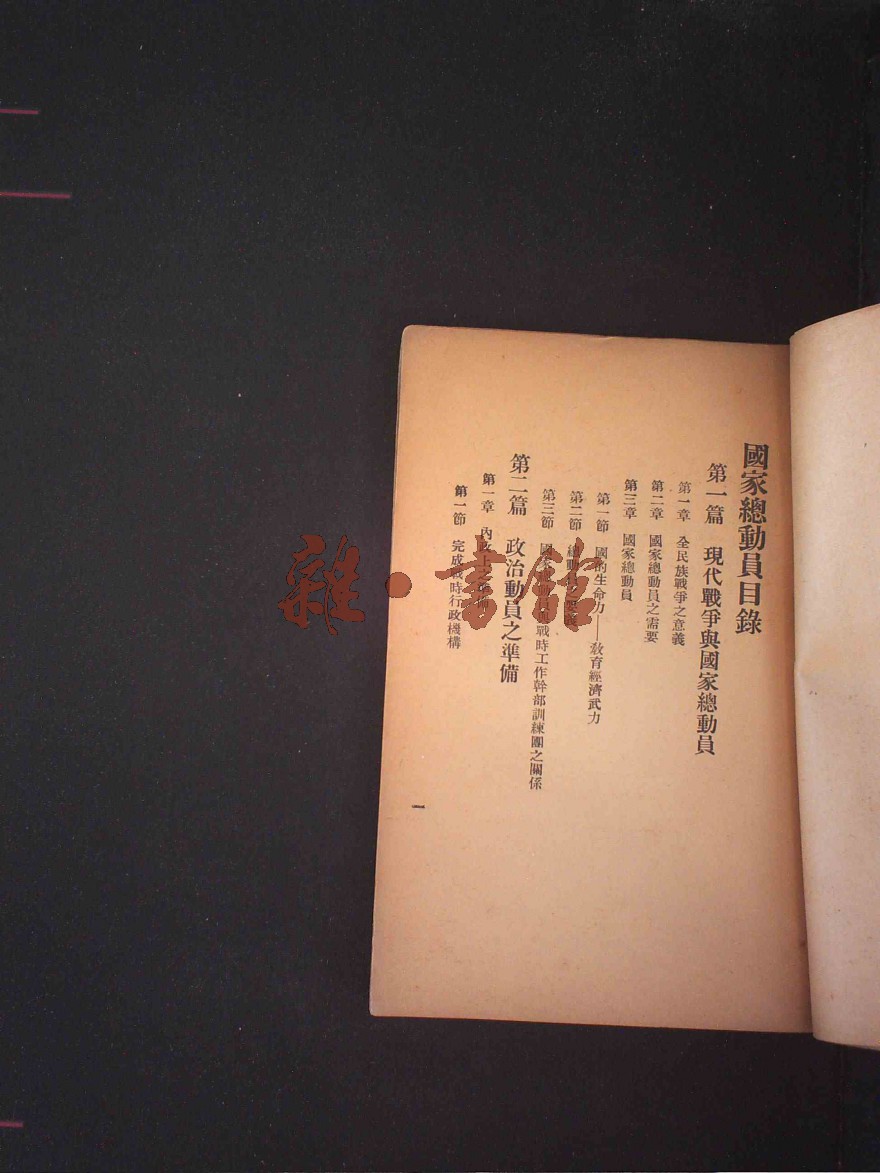 國家總動員目錄
第一篇 現代戰爭與國家總動員
第一章 全民族戰爭之意義
第二章 國家總動員之需要
第三章 國家總動員
第一節 國的生命力——教育經濟武力
第二節 總動員之
第三節 國家總動員與戰時工作幹部訓練團之關係
第二篇 政治動員之準備
第一章 內政上之準備
第一節 完成戰時行政機構
一
雜·書館